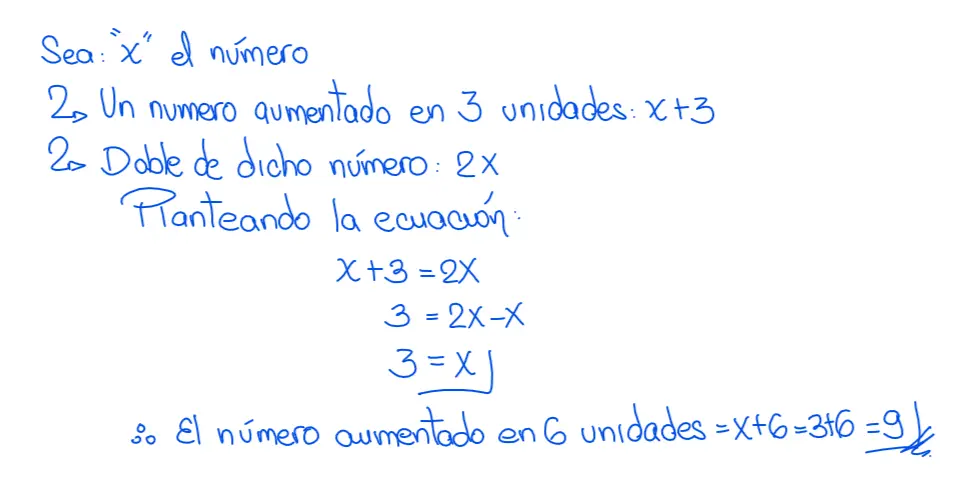 Sea: "x" el número
2▹ Un numero aumentado en 3 unidades: x+3
2▹ Doble de dicho número: 2x
Planteando la ecuación:
x+3 = 2x
3 = 2x-x
3 = x
∴ El número aumentado en 6 unidades = x+6 = 3+6 = 9